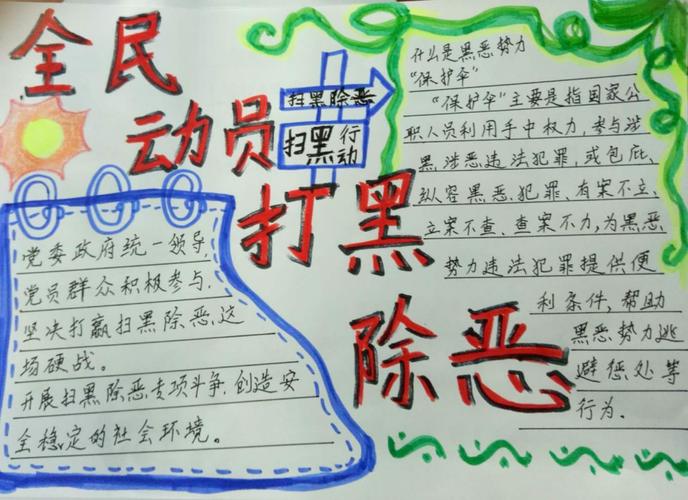 全民
动员
打黑
除恶
扫黑除恶
扫黑行动
党委政府统一领导,
党员群众积极参与,
坚决打赢扫黑除恶这
场硬战。
开展扫黑除恶专项斗争,创造安
全稳定的社会环境。
什么是黑恶势力
“保护伞”
“保护伞”主要是指国家公
职人员利用手中权力,参与涉
黑涉恶违法犯罪,或包庇、
纵容黑恶犯罪、有案不立、
立案不查、查案不力,为黑恶
势力违法犯罪提供便
利条件,帮助
黑恶势力逃
避惩处等
行为.